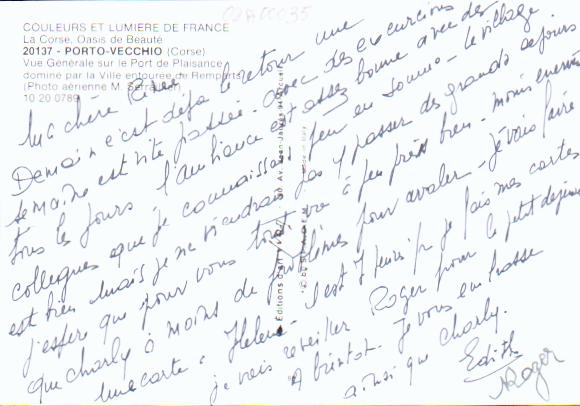 02A00035
COULEURS ET LUMIERE DE FRANCE
La Corse, Oasis de Beauté
20137 - PORTO-VECCHIO (Corse)
Vue Générale sur le Port de Plaisance
dominé par la Ville entourée de Remparts
(Photo aérienne M.
10 20 0789
Ma chère
Demain c'est déjà le retour une
semaine est vite passée. avec des excursions
tous les jours l'ambiance est assez bonne avec des
collegues que je connaissais peu en somme - le village
est bien mais je ne viendrais pas y passer des grands séjours
j'espère que pour vous tout va à peu près bien - moins
que charly a moins de problèmes pour avaler - Je vais faire
une carte à Helene - il est 7 heures je fais mes cartes
je vais reveiller Roger pour le petit dejeuner
A bientot - Je vous embrasse
ainsi que charly.
Edith
Roger